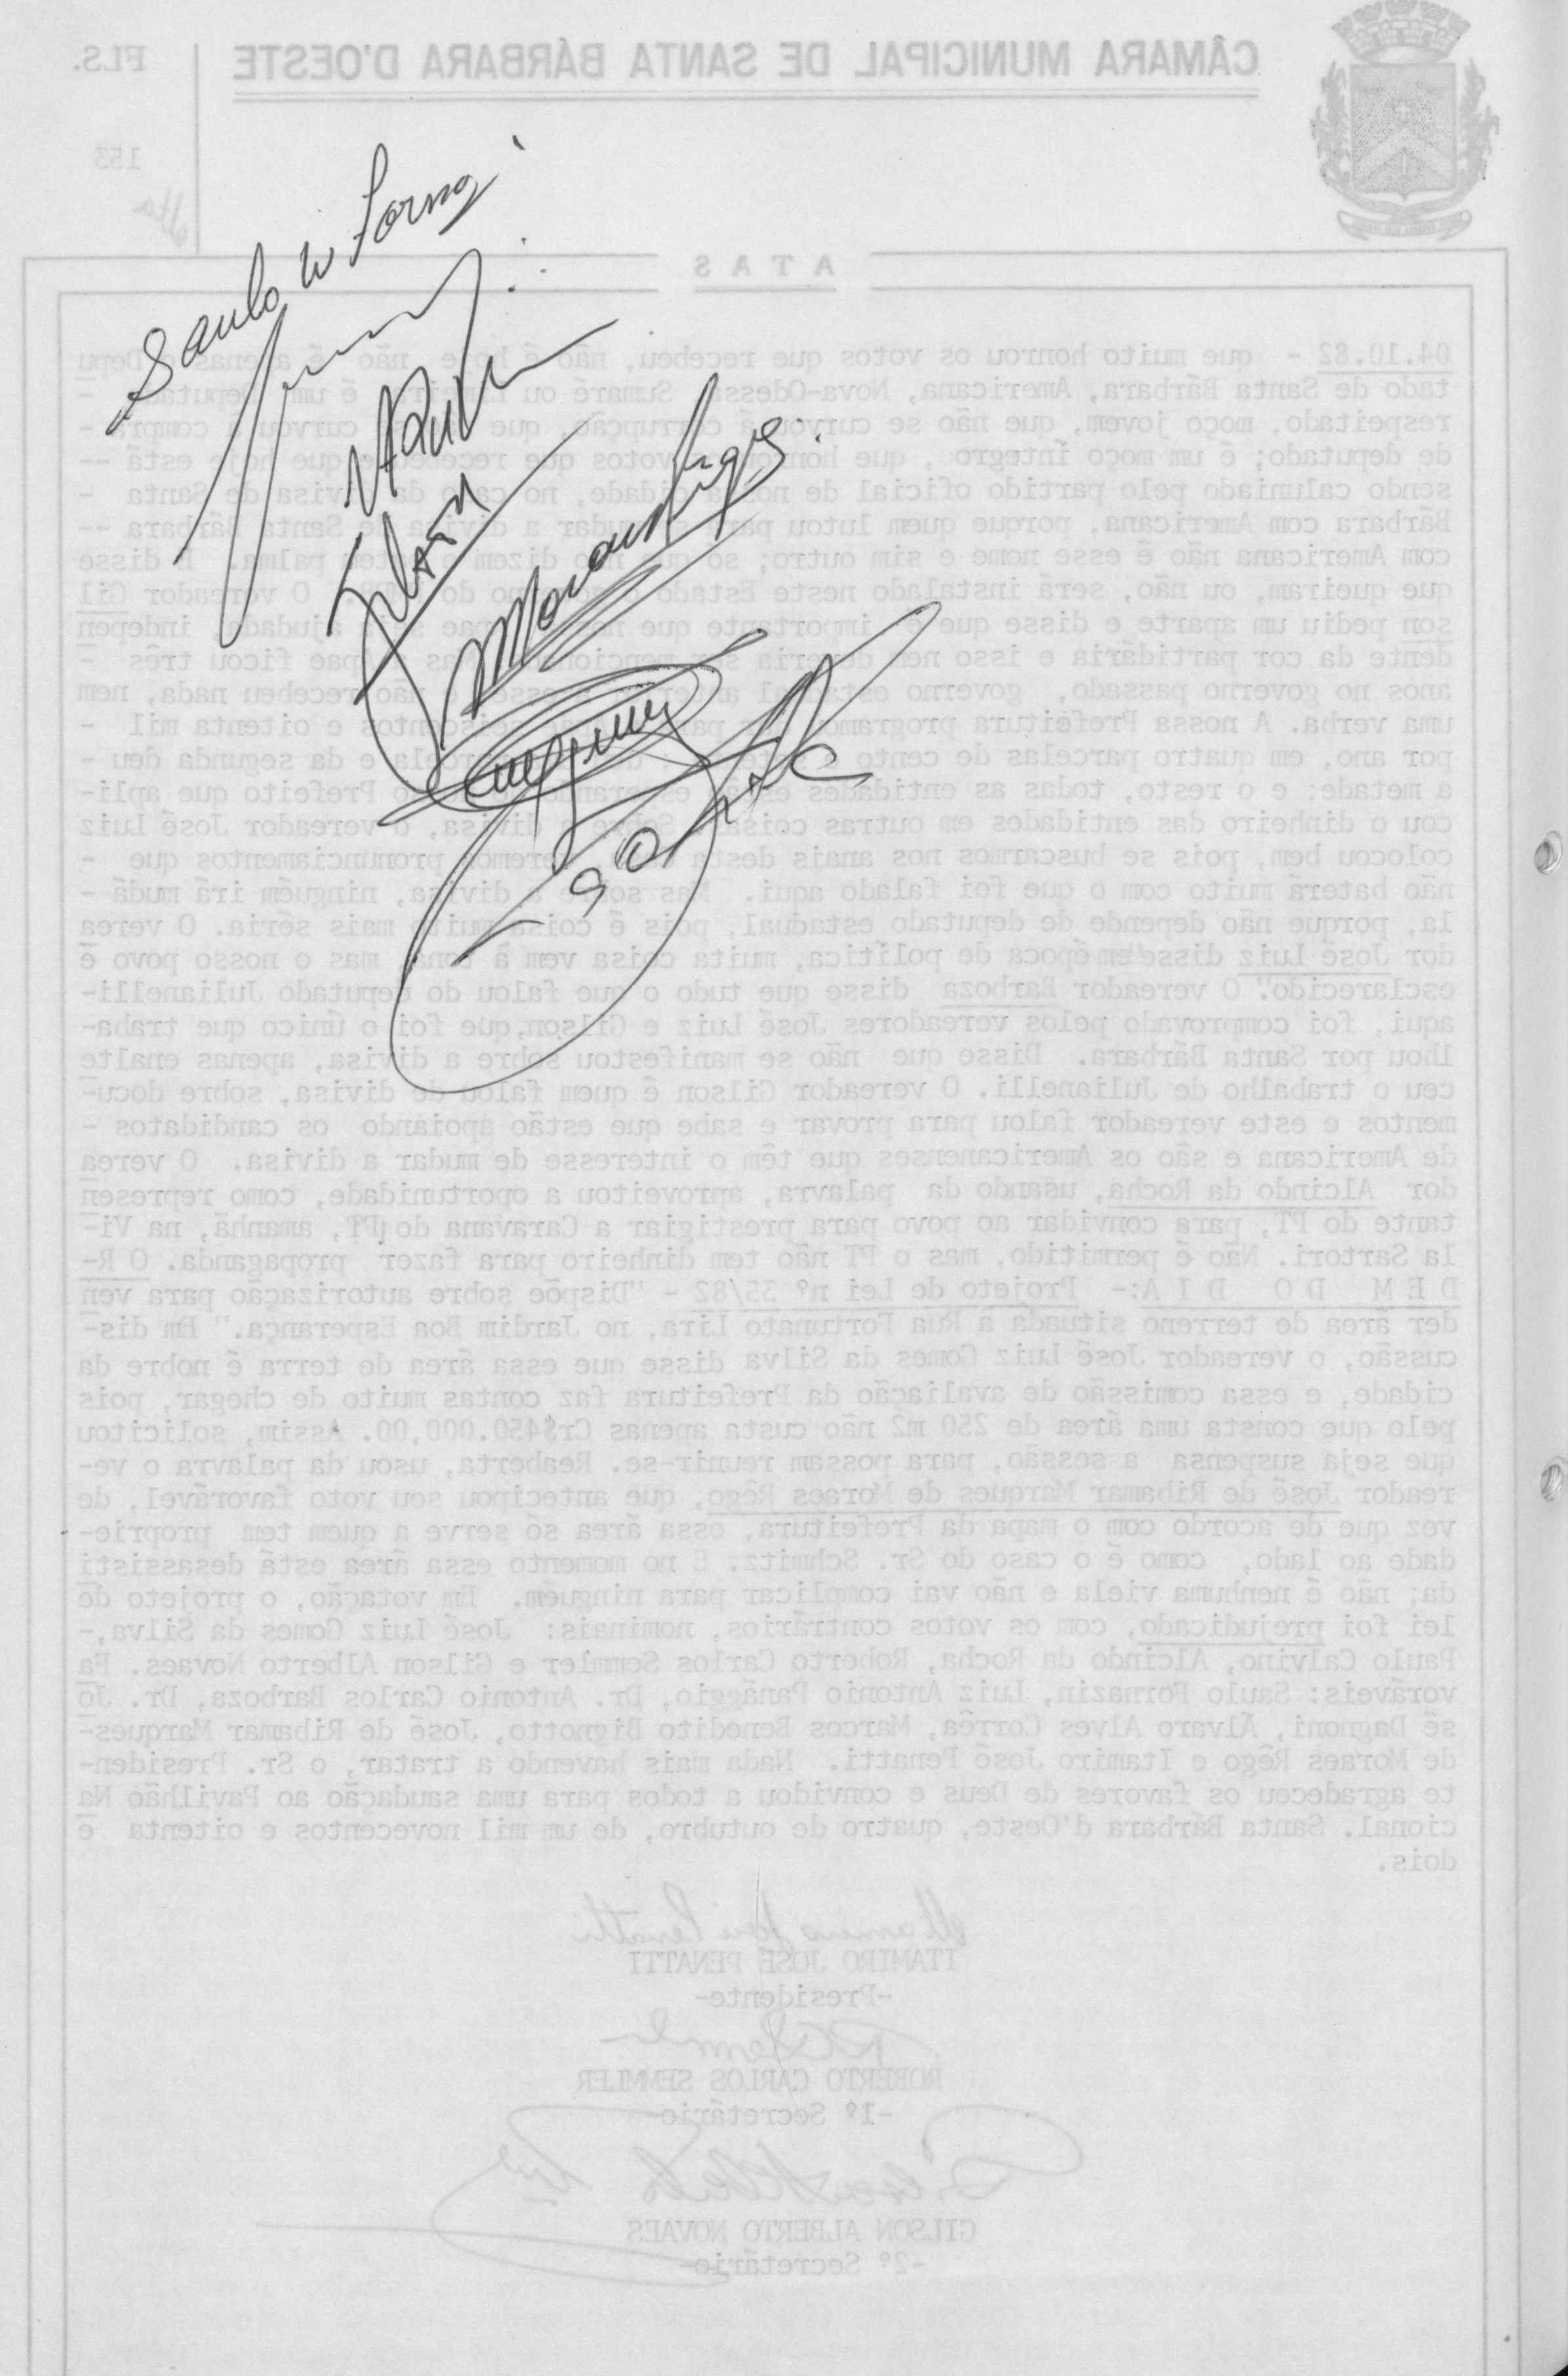 CÂMARA MUNICIPAL DE SANTA BÁRBARA D'OESTE
FLS.
153
Saulo
A T A S
04.10.82 - que muito honrou os votos que recebeu, não é hoje, não é apenas o Depu
tado de Santa Bárbara, Americana, Nova-Odessa, Sumaré ou Limeira, é um deputado -
respeitado, moço jovem, que não se curvou à corrupção, que não se curvou à compra -
de deputado; é um moço íntegro, que honrou os votos que recebeu e que hoje está --
sendo caluniado pelo partido oficial de nossa cidade, no caso da divisa de Santa -
Bárbara com Americana, porque quem lutou para se mudar a divisa de Santa Bárbara --
com Americana não é esse nome e sim outro; só que não dizem e batem palma. E disse
que queiram, ou não, será instalado neste Estado o governo do O vereador Gil
son pediu um aparte e disse que é importante que a seja ajudada, indepen
dente da cor partidária e isso nem deveria ser mencionado, mas a ficou três -
anos no governo passado, governo estadual e não recebeu nada, nem
uma verba. A nossa Prefeitura programou seiscentos e oitenta mil -
por ano, em quatro parcelas de cento e e da segunda deu -
a metade; e o resto, todas as entidades estão esperando o Prefeito que apli-
cou o dinheiro das entidades em outras coisas. Sobre a divisa, o vereador José Luiz
colocou bem, pois se buscarmos nos anais desta veremos pronunciamentos que -
não baterá muito com o que foi falado aqui. Mas sobre a divisa, ninguém irá mudá-
la, porque não depende de deputado estadual, pois é coisa muito mais séria. O verea
dor José Luiz disse"em época de política, muita coisa vem à tona, mas o nosso povo é
esclarecido". O vereador Barboza disse que tudo o que falou do deputado Julianelli-
aqui, foi comprovado pelos vereadores José Luiz e Gilson, que foi o único que traba-
lhou por Santa Bárbara. Disse que não se manifestou sobre a divisa, apenas enalte
ceu o trabalho de Julianelli. O vereador Gilson é quem falou de divisa, sobre docu-
mentos e este vereador falou para provar e sabe que estão apoiando os candidatos -
de Americana e são os Americanenses que têm o interesse de mudar a divisa. O verea
dor Alcindo da Rocha, usando da palavra, aproveitou a oportunidade, como represen
tante do PT, para convidar ao povo para prestigiar a Caravana do PT, amanhã, na Vi-
la Sartori. Não é permitido, mas o PT não tem dinheiro para fazer propaganda. O R-
D E M D O D I A:- Projeto de Lei nº 35/82 - "Dispõe sobre autorização para ven
der área de terreno situada a Rua Fortunato Lira, no Jardim Boa Esperança." Em dis-
cussão, o vereador José Luiz Gomes da Silva disse que essa área de terra é nobre da
cidade, e essa comissão de avaliação da Prefeitura faz contas muito de chegar, pois
pelo que consta uma área de 250 m2 não custa apenas Cr$450.000,00. Assim, solicitou
que seja suspensa a sessão, para possam reunir-se. Reaberta, usou da palavra o ve-
reador José de Ribamar Marques de Moraes Rêgo, que antecipou seu voto favorável, de
vez que de acordo com o mapa da Prefeitura, essa área só serve a quem tem proprie-
dade ao lado, como é o caso do Sr. Schmitz. E no momento essa área está desassisti
da; não é nenhuma viela e não vai complicar para ninguém. Em votação, o projeto de
lei foi prejudicado, com os votos contrários, nominais: José Luiz Gomes da Silva,-
Paulo Calvino, Alcindo da Rocha, Roberto Carlos Semmler e Gilson Alberto Novaes. Fa
voráveis: Saulo Fornazin, Luiz Antonio Panággio, Dr. Antonio Carlos Barboza, Dr. Jo
sé Dagnoni, Álvaro Alves Corrêa, Marcos Benedito Bignotto, José de Ribamar Marques-
de Moraes Rêgo e Itamiro José Penatti. Nada mais havendo a tratar, o Sr. Presiden-
te agradeceu os favores de Deus e convidou a todos para uma saudação ao Pavilhão Na
cional. Santa Bárbara d'Oeste, quatro de outubro, de um mil novecentos e oitenta e
dois.
Itamiro José Penatti
ITAMIRO JOSÉ PENATTI
-Presidente-
ROBERTO CARLOS SEMMLER
-1º Secretário-
GILSON ALBERTO NOVAES
-2º Secretário-